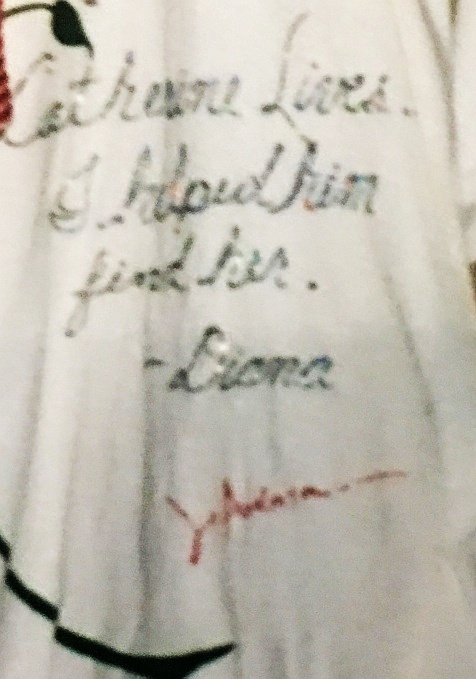 Catherine Lives.
I helped him
find her.
-Diana